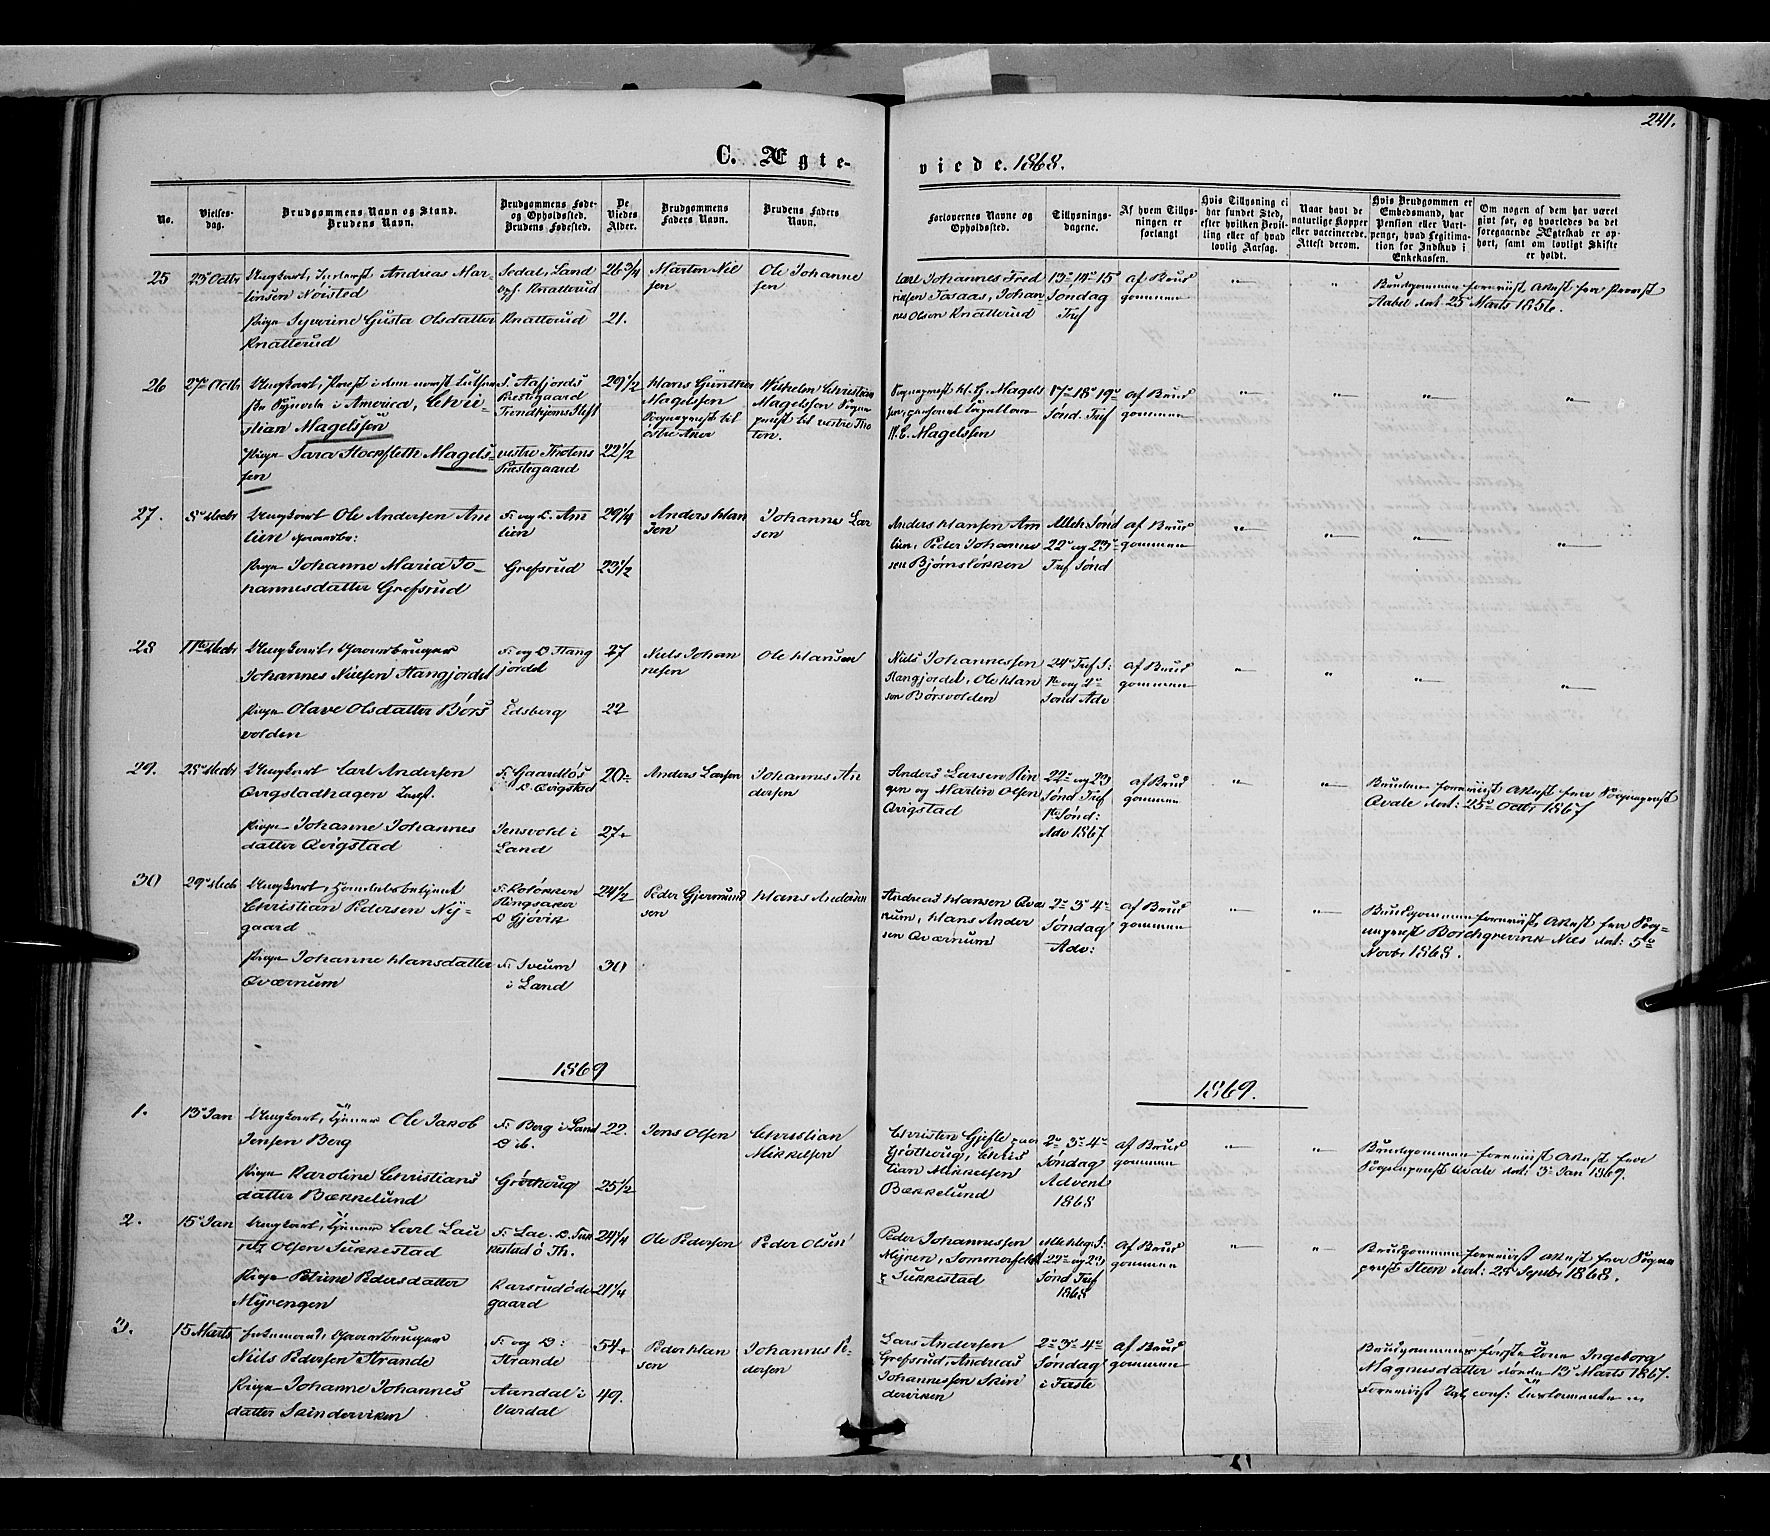 241.
C. Ægte-
viede. 1868.
No.
Vielses-
dag.
Brudgommens Navn og Stand.
Brudens Navn.
Brudgommens Føde-
og Opholdssted.
Brudens Fødested.
De
Viedes
Alder.
Brudgommens
Faders Navn.
Brudens Faders
Navn.
Forlovernes Navne og
Opholdssted.
Tillysnings-
dagene.
Af hvem Tillys-
ningen er
forlangt
Hvis Tillysning ei
har fundet Sted,
efter hvilken Bevil-
ling eller af hvad
lovlig Aarsag.
Naar havt de
naturlige Kopper
eller vaccinerede.
Attest derom.
Hvis Brudgommen er
Embedsmand, har
Pension eller Vart-
penge, hvad Legitima-
tion for Indskud i
Enkekassen.
Om nogen af dem har været
gift før, og hvorledes da det
foregaaende Ægteskab er op-
hørt, samt om lovligt Skifte
er holdt.
25
23de Octbr
Ungkarl, Andreas Mar
tinsen Nøisted
Pige Syverine Gusta Olsdatter
Knatterud
Sedal, Land
Oph. Knatterud
Knatterud
26 3/4
21.
Marten Niel
sen
Ole Johanne
sen
Carl Johannes Fred
riksen Fosaas, Johan
nes Olsen Knatterud
13de 14de 15
Søndag
Tref
af Brud
gommen
Brudgommen foreviist Attest fra Provst
Aabel dat. 25 Marts 1856.
26
27de Octbr
Ungkarl, Præst i den norsk luther
ske Synode i America, Chri-
stian Magelssen
Pige Sara Stockflette Magels-
sen
S. Aafjords
Præstegaard
Trondhjems Stift
vestre Thotens
Præstegaard
29 1/2
22 1/2
Hans Günther
Magelssen
Sogneprest til
Wilhelm Christian
Magelssen Sogne
prest til vestre Tho
ten.
Sogneprest H. G. Magels
sen, personel Capellan
W. C. Magelssen
17de 18de 19de
Sønd. Tref
af Brud
gommen
27.
8de Decbr
Ungkarl Ole Andersen Am
lien Gaardbr:
Pige Johanne Maria Jo-
hannesdatter Grefsrud
F. og O. Am
lien
Grefsrud
29 1/4
23 1/2
Anders Han
sen
Johannes Lar
sen
Anders Hansen Am
lien, Peder Johanne
sen Bjørnsløkken
Alleh. Sønd
22de og 23de
Tref Sønd
af Brud
gommen
28
11te Decbr
Ungkarl, Gaardbruger
Johannes Nielsen Stangjordet
Pige Olave Olsdatter Børs
volden
F. og O. Stang
jordet
Edsberg
27
22
Niels Johan
nesen
Ole Hansen
Niels Johannessen
Stangjordet, Ole Han
sen Børsvolden
24de Tref S:
1ste og 2de
Sønd Adv
af Brud
gommen
29.
28de Decbr
Ungkarl Carl Andersen
Qvigstadhagen Inderst.
Pige Johanne Johannes
datter Qvigstad
F. Gaardløs
O. Qvigstad
Jensvold i
Land
20
27
Anders Larsen
Johannes An
dersen
Anders Larsen Rin
gen og Martin Olsen
Qvigstad
22de og 23
Sønd Tref
1ste Sønd:
Adv 1867
af Brud
gommen
Bruden foreviist Attest fra Sogneprest
Qvale dat: 25de Octbr 1867
30
29de Decb
Ungkarl, Handelsbetjent
Christian Pedersen Ny-
gaard
Pige Johanne Hansdatter
Qværnum
F. Roløkken
Ringsaker
O Gjøvik
F. Sveum
i Land
24 1/2
30
Peder Gjermund
sen
Hans Andersen
Andreas Hansen Qvæ
rnum, Hans Ander
sen Qværnum
2de 3de 4de
Søndag
Adv:
af Brud
gommen
Brudgommen foreviist Attest fra Sog-
neprest Borchgrevink Næs dat: 5te
Novbr 1868.
1869
1869.
1.
13de Jan
Ungkarl, Tjener Ole Jakob
Jensen Berg
Pige Karoline Christians
datter Bækkelund
F. Berg i Land
O ib.
Grøthoug
22.
25 1/2
Jens Olsen
Christian
Mikkelsen
Christen Gjefle paa
Grøthoug, Chris
tian Mikkelsen
Bækkelund
2de 3de 4de
Søndag
Advent
1868
af Brud
gommen
Brudgommen foreviist Attest fra
Sogneprest Qvale dat: 3de Jan 1869.
2.
15de Jan
Ungkarl, Tjener Carl Lau
ritz Olsen Sukkestad
Pige Petrine Pedersdatter
Myrengen
F: Lae. O. Suk
kestad Ø Th.
Karsrudøde
gaard
24 1/4
21 1/4
Ole Pedersen
Peder Olsen
Peder Johannessen
Myren, Sommerfeldt
p Sukkestad
Allehlg. S:
22de og 23
Sønd Tref
1868
af Brud
gommen
Brudgommen foreviist Attest fra Sogne
prest Steen dat: 28 Septbr 1868.
3.
15 Marts
Enkemand, Gaardbruger
Niels Pedersen Strande
Pige Johanne Johannes
datter Skinderviken
F: og O:
Strande
Aandal i
Vardal
54
49.
Peder Han
sen
Johannes Pe-
dersen
Lars Andersen
Grefsrud, Andreas
Johannessen Skin
derviken
2de 3de 4de
Søndag
i Faste
af Brud
gommen
Brudgommens første Kone Ingeborg
Magnusdatter døde 13de Marts 1867.
Foreviist kgl. conf: Testamente